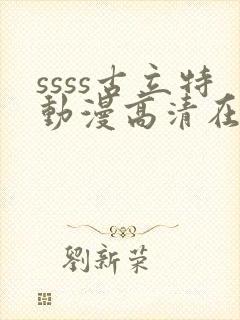 ssss古立特
動漫高清在
劉新荣